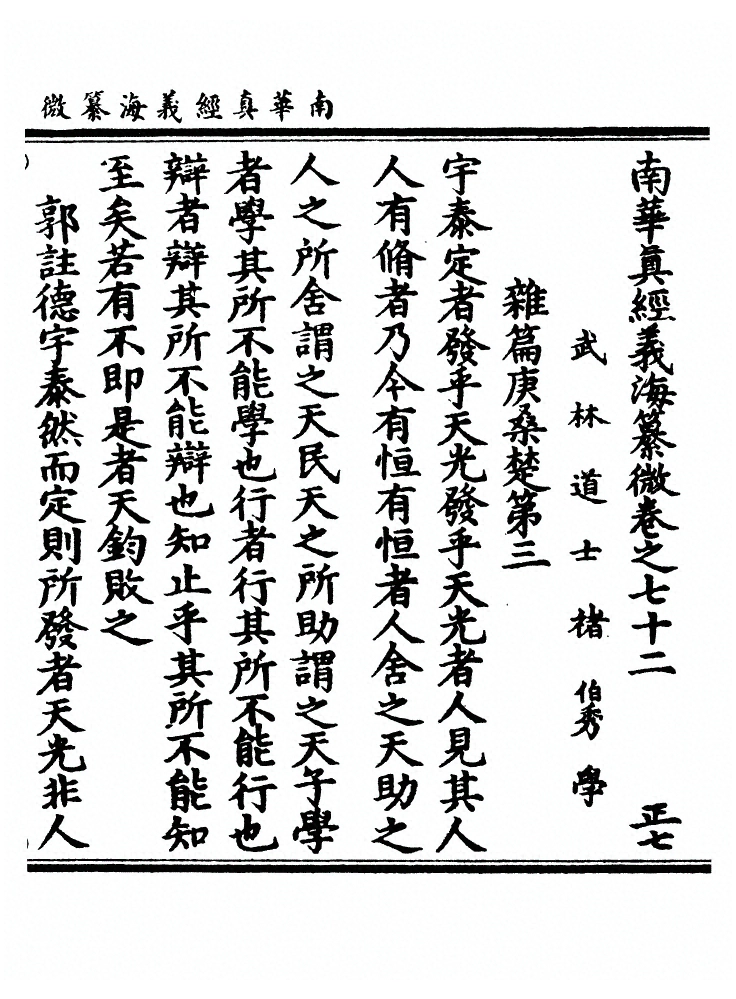 南華真經義海纂微
南華真經義海纂微卷之七十二 正七
武林道士褚伯秀學
雜篇庚桑楚第三
宇泰定者發乎天光發乎天光者人見其人
人有脩者乃今有恒有恒者人舍之天助之
人之所舍謂之天民天之所助謂之天子學
者學其所不能學也行者行其所不能行也
辯者辯其所不能辯也知止乎其所不能知
至矣若有不即是者天鈞敗之
郭註德宇泰然而定則所發者天光非人